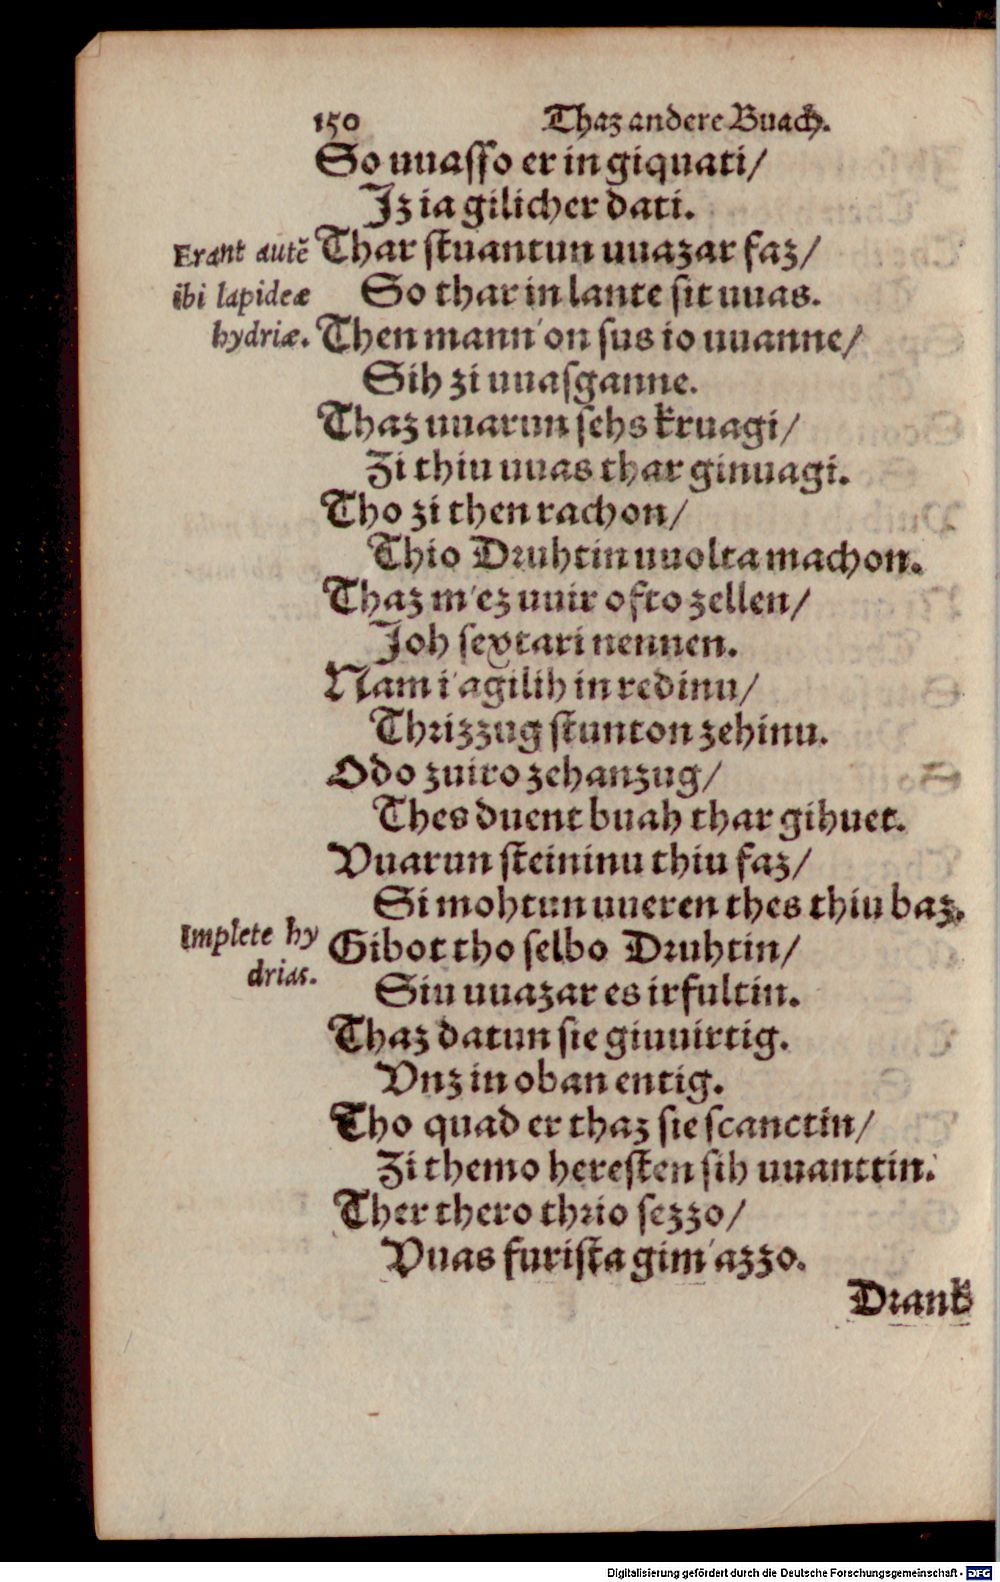 150 Thaz andere Buach.
So uuasso er in giquati/
Iz ia gilicher dati.
Erant autē
ibi lapideæ
hydriæ.
Thar stuantun uuazar faz/
So thar in lante sit uuas.
Then mann'on sus io uuanne/
Sih zi uuasganne.
Thaz uuarun sehs kruagi/
Zi thiu uuas thar ginuagi.
Tho zi then rachon/
Thio Druhtin uuolta machon.
Thaz m'ez uuir ofto zellen/
Joh sextari nennen.
Nam i'agilih in redinu/
Thrizzug stunton zehinu.
Odo zuiro zehanzug/
Thes duent buah thar gihuet.
Vuarun steininu thiu faz/
Si mohtun uueren thes thiu baz.
Implete hy
drias.
Gibot tho selbo Druhtin/
Siu uuazar es irfultin.
Thaz datun sie giuuirtig.
Vnz in oban entig.
Tho quad er thaz sie scanctin/
Zi themo heresten sih uuanttin.
Ther thero thrio sezzo/
Vuas furista gim'azzo.
Drank
Digitalisierung gefördert durch die Deutsche Forschungsgemeinschaft - DFG